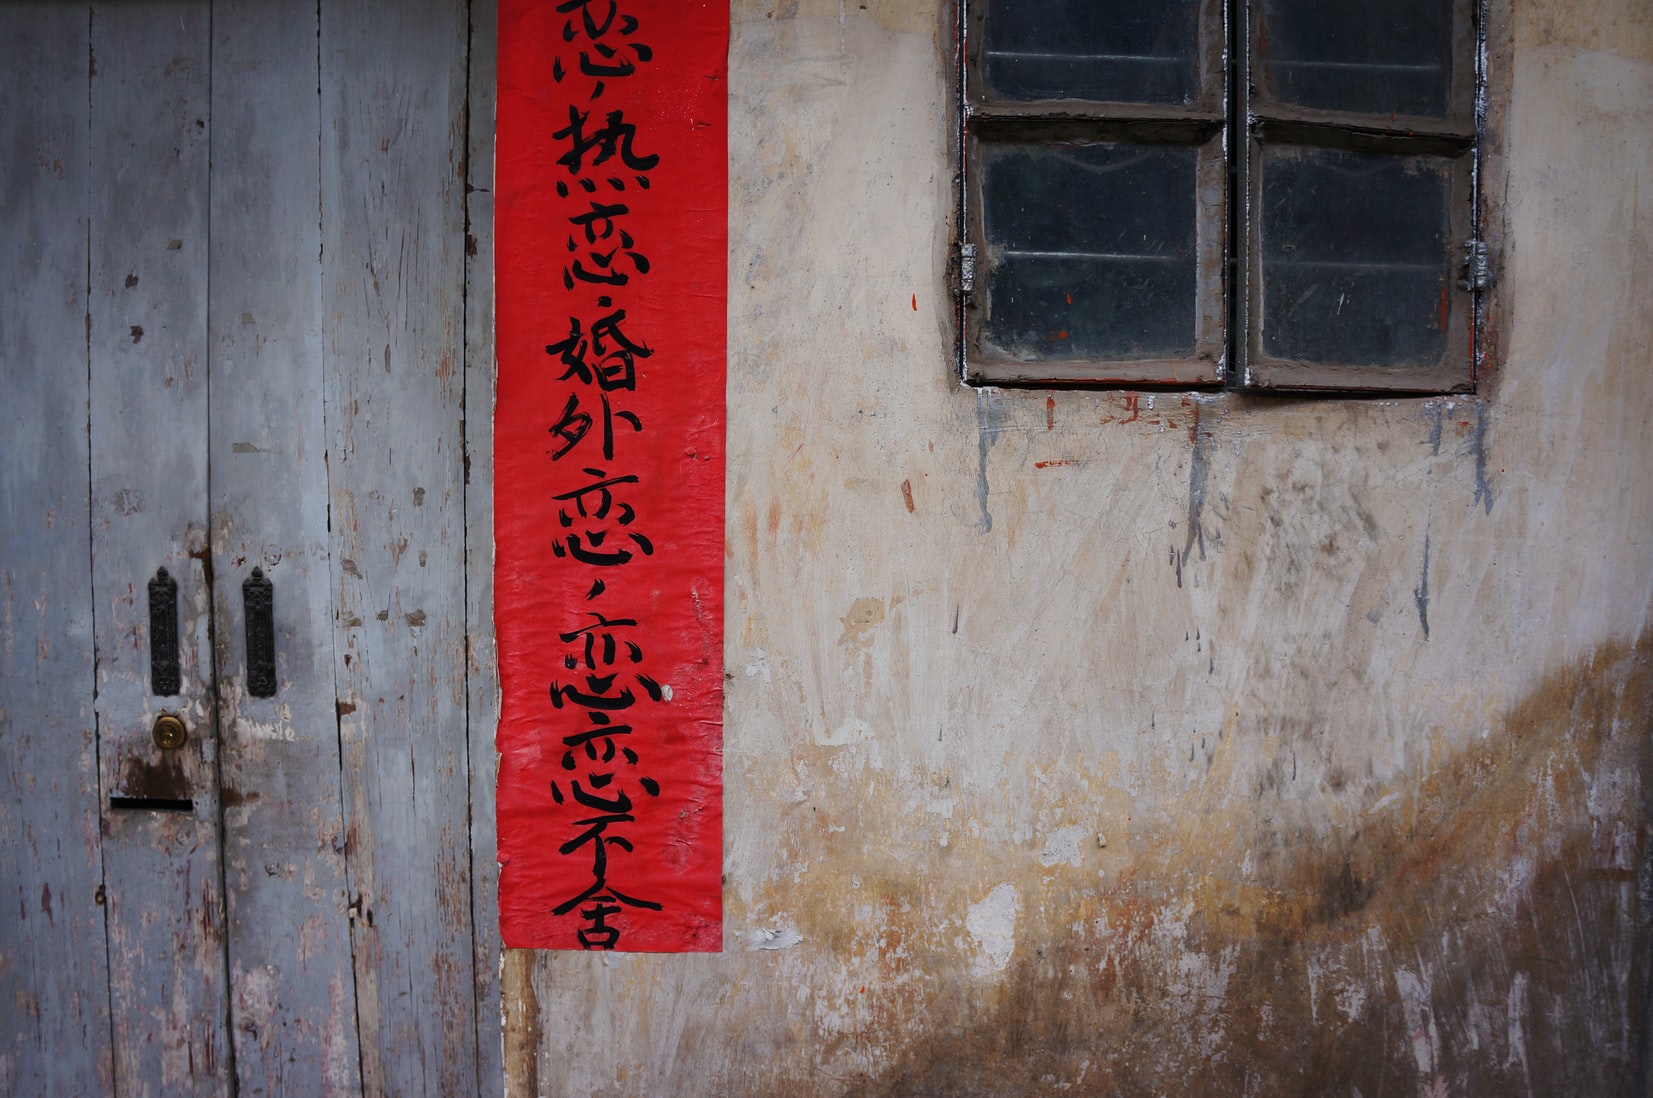 恋，热恋，婚外恋，恋恋不舍